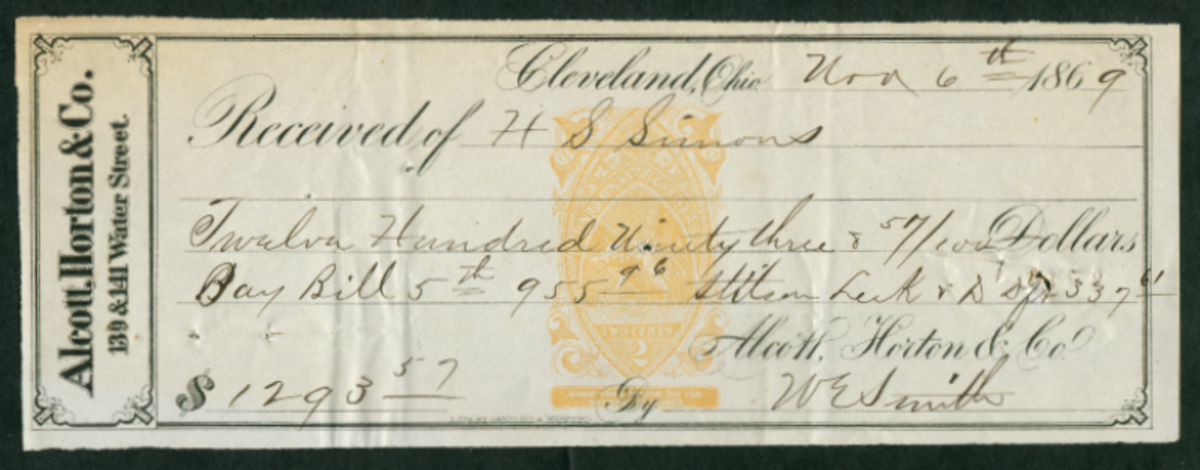 Alcott, Horton & Co.
139 & 141 Water Street.
Cleveland, Ohio Nov 6th 1869
Received of H S Simons
Twelve Hundred Ninety three & 57/100 Dollars
Pay Bill 5th 955 96 Stilson Leek & D 337 61
Alcott, Horton & Co.
$ 1293 57 By W E Smith
TWO CENTS
2